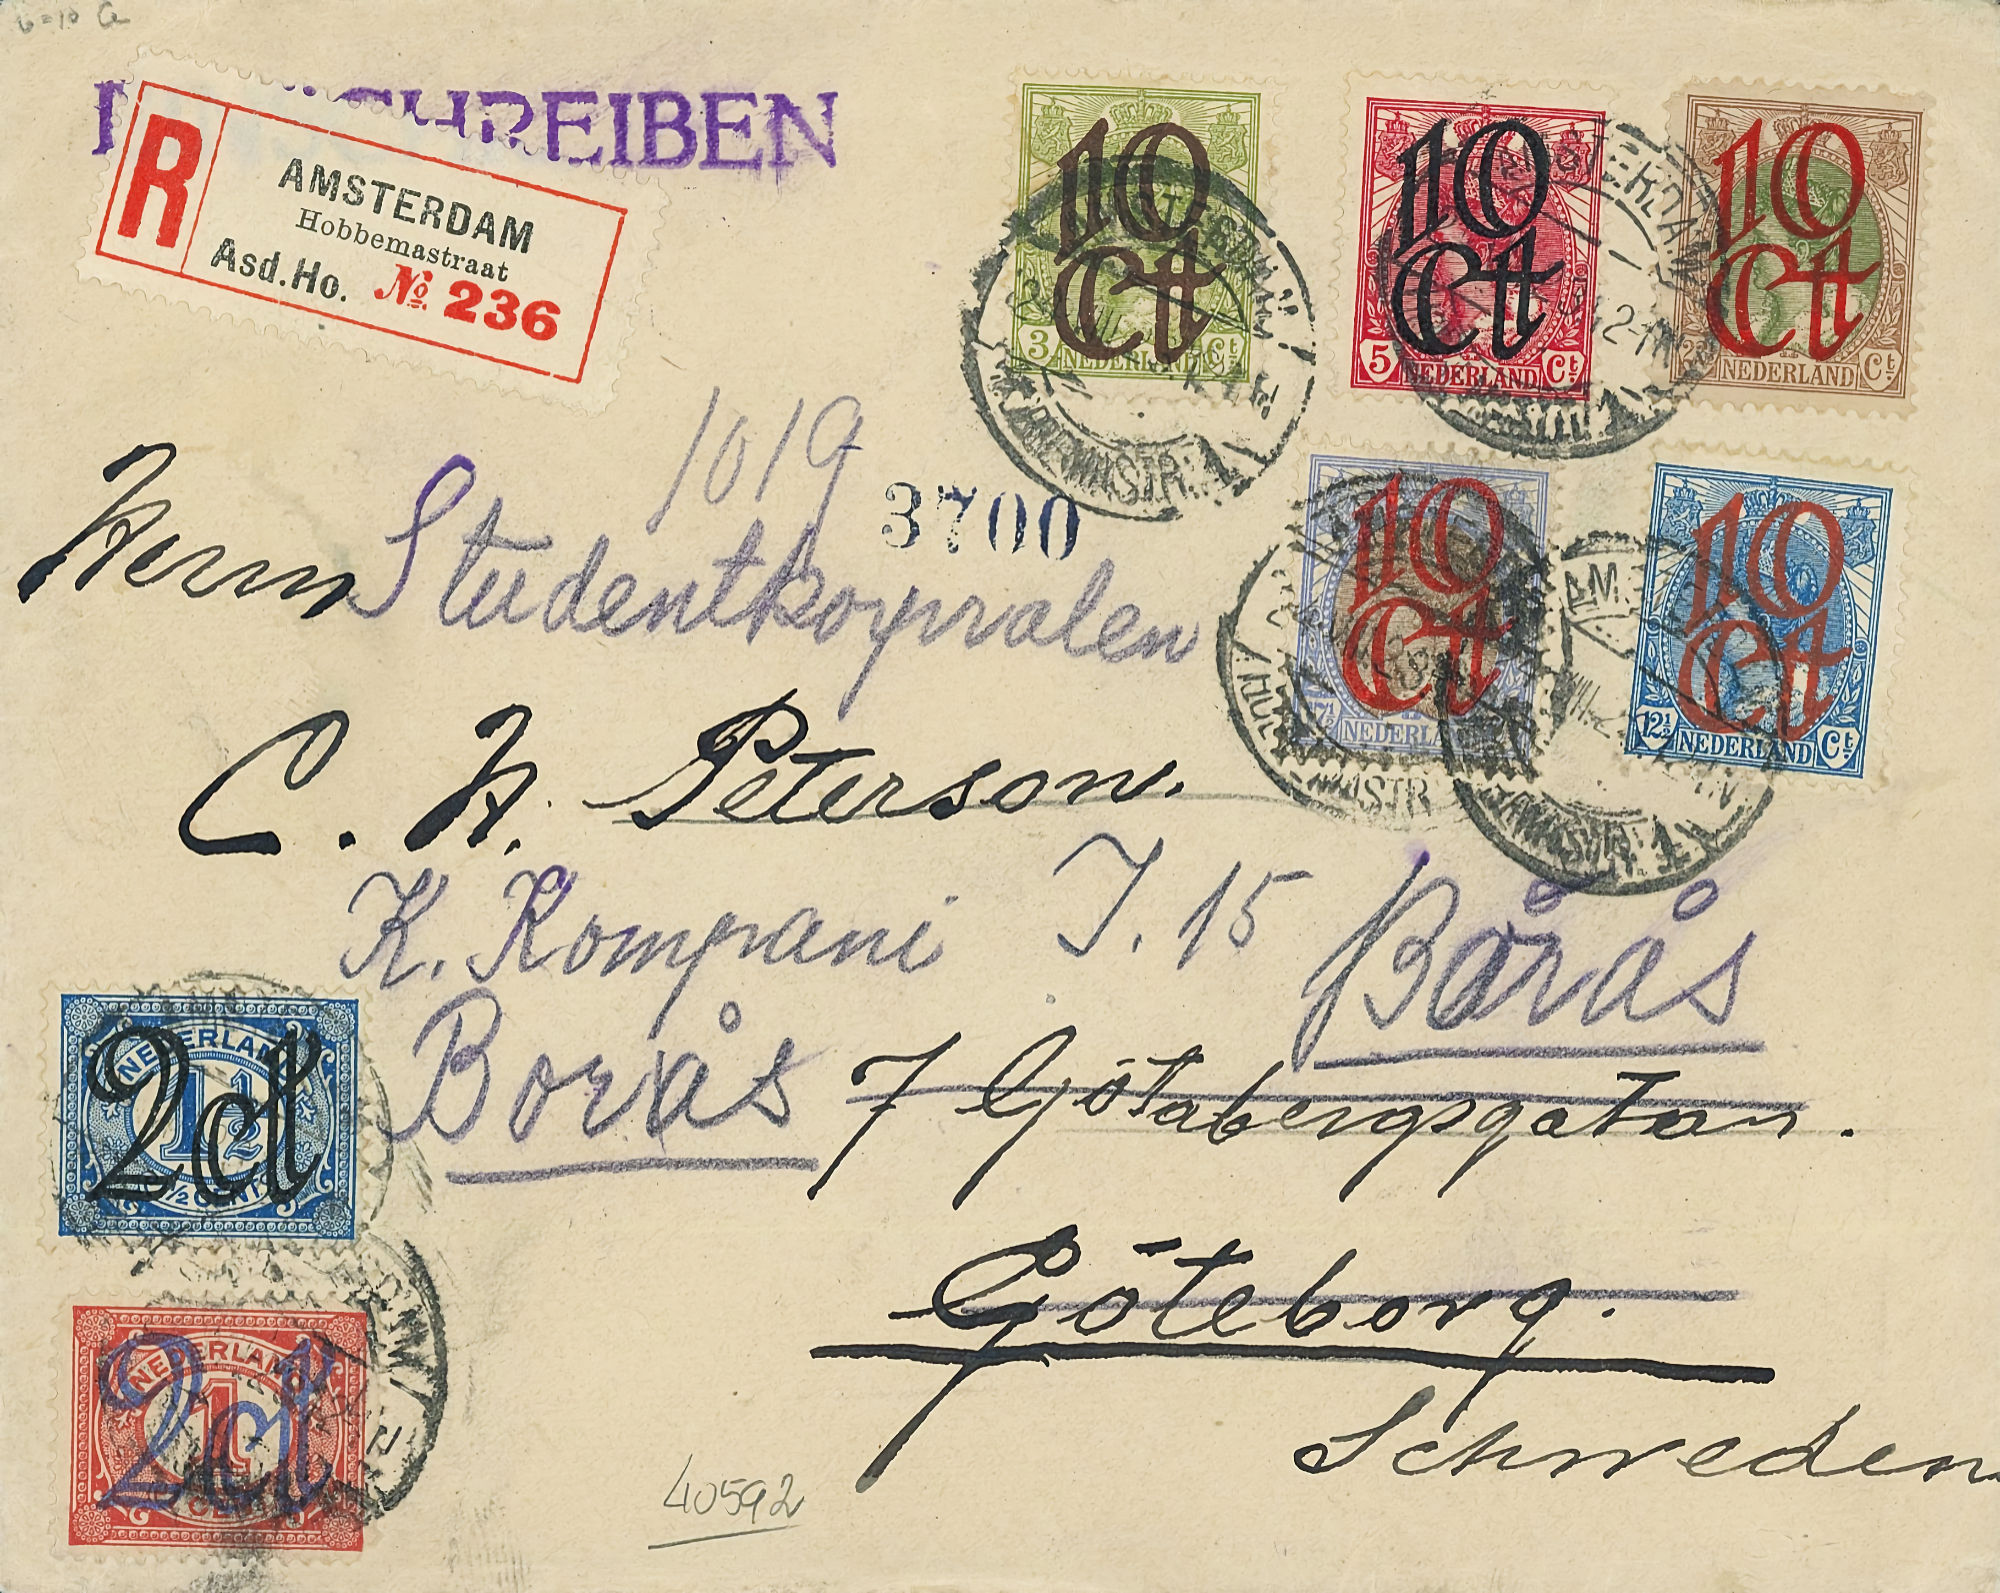 SCHREIBEN
R
AMSTERDAM
Hobbemastraat
Asd.Ho. No 236
10 Ct
3 NEDERLAND Ct
10 Ct
5 NEDERLAND Ct
10 Ct
NEDERLAND Ct
10 Ct
17½ NEDERLAND
10 Ct
12½ NEDERLAND Ct
1019
3700
Herrn Studentkorpralen
C. H. Peterson.
K. Kompani I. 15 Borås
Borås
7 Götabergsgatan.
Göteborg.
Schweden
NEDERLAND
1½
2 ct
½ CENT
NEDERLAND
1
2 ct
CENT
40592